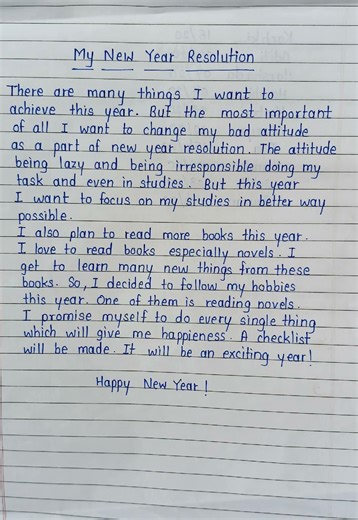 My New Year Resolution
There are many things I want to
achieve this year. But the most important
of all I want to change my bad attitude
as a part of new year resolution. The attitude
being lazy and being irresponsible doing my
task and even in studies. But this year
I want to focus on my studies in better way
possible.
I also plan to read more books this year.
I love to read books especially novels. I
get to learn many new things from these
books. So, I decided to follow my hobbies
this year. One of them is reading novels.
I promise myself to do every single thing
which will give me happieness. A checklist
will be made. It will be an exciting year!
Happy New Year!